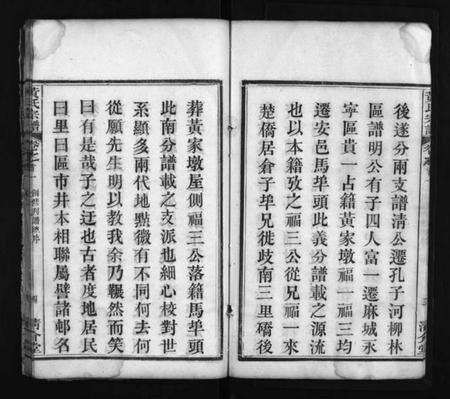 後遂分兩支譜清公遷孔子河柳林
區譜明公有子四人富一遷麻城永
寧區貴一占籍黃家墩福一福三均
遷安邑馬埠頭此義分譜載之源流
也以本籍攷之福三公從兄福一來
楚僑居倉子埠兄徙歧南三里礄後
葬黃家墩屋側福三公落籍馬埠頭
此南分譜載之支派也細心校對世
系顯多兩代地點微有不同何去何
從願先生明以教我余乃囅然而笑
曰有是哉子之迂也古者度地居民
曰里曰區市井本相聯屬譬諸邨名
黃氏宗譜